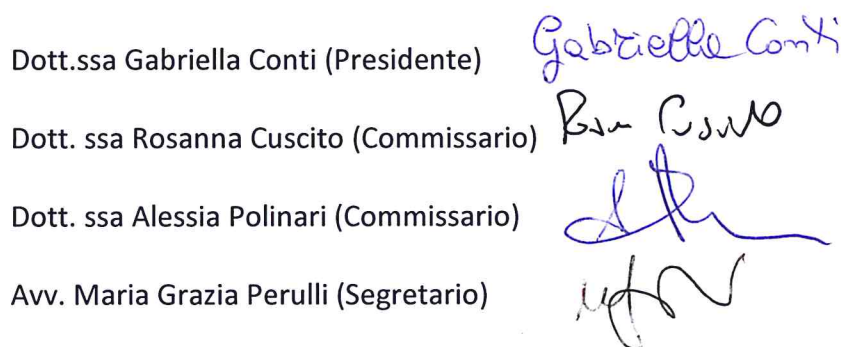 Dott.ssa Gabriella Conti (Presidente) Gabriella Conti
Dott. ssa Rosanna Cuscito (Commissario)
Dott. ssa Alessia Polinari (Commissario)
Avv. Maria Grazia Perulli (Segretario)